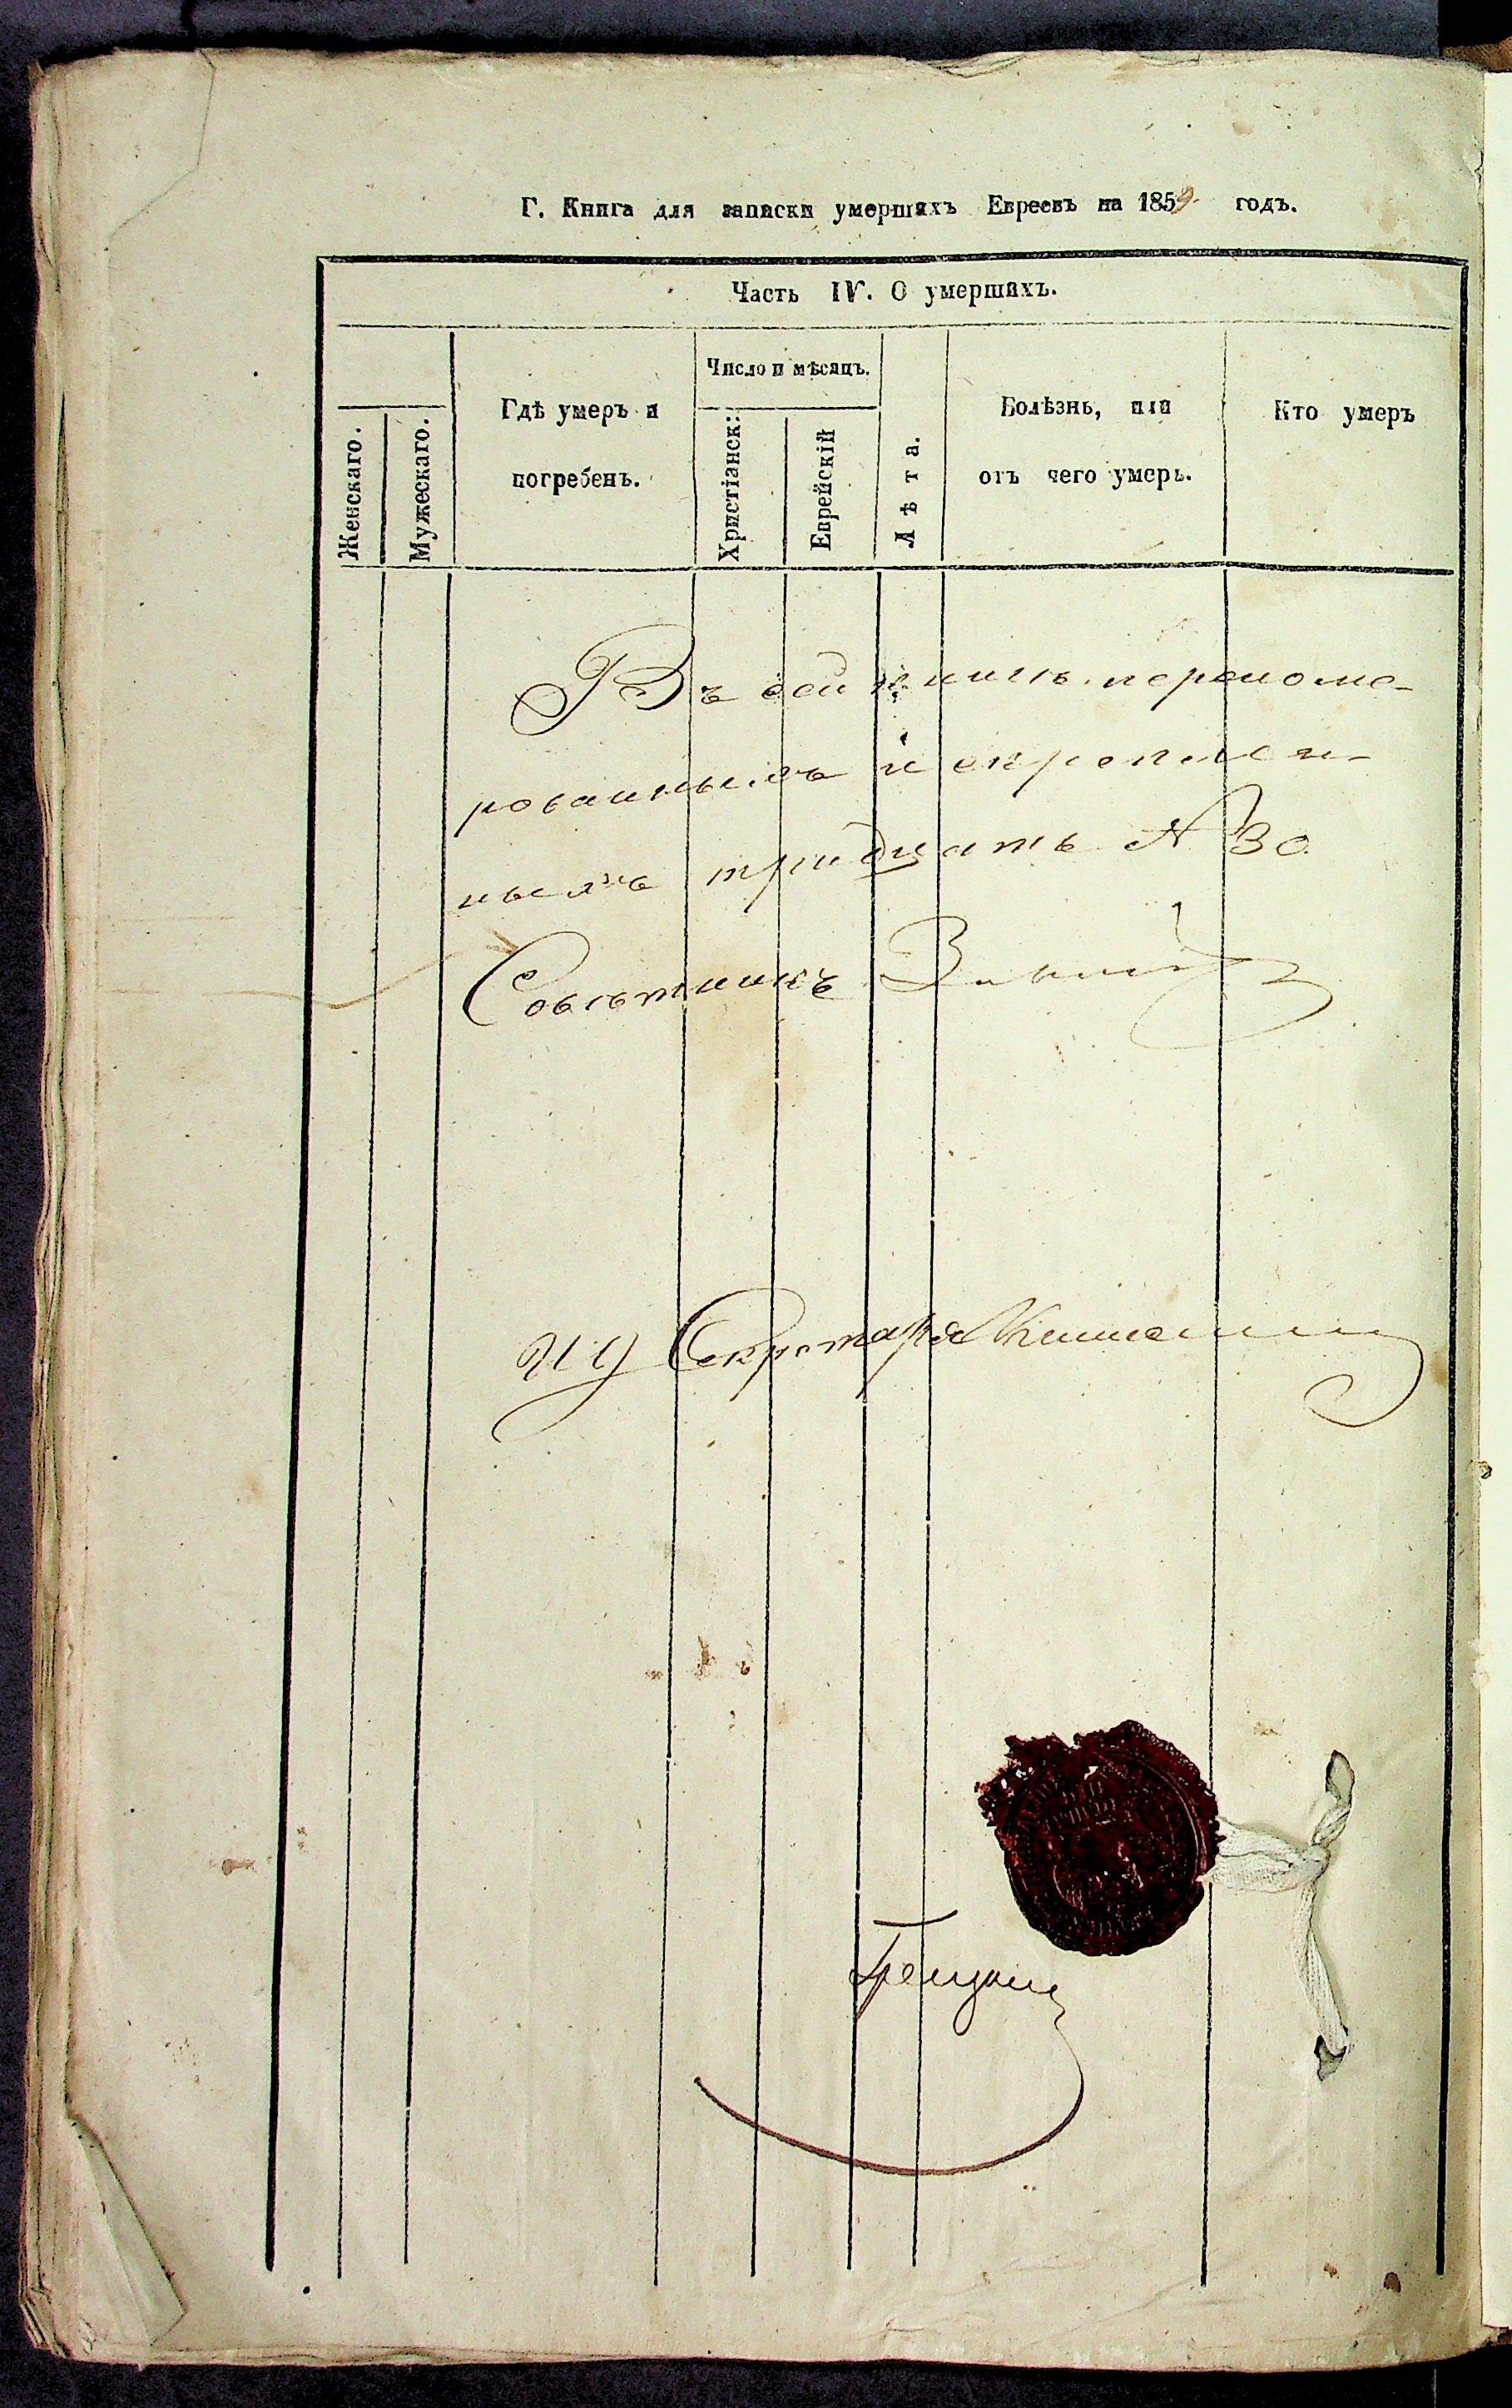 Г. Книга для записки умершихъ Евреевъ на 1859 годъ.
Часть IV. О умершихъ.
Женскаго.
Мужескаго.
Гдѣ умеръ и
погребенъ.
Число и мѣсяцъ.
Христіанск:
Еврейскій
Лѣта.
Болѣзнь, или
отъ чего умеръ.
Кто умеръ
Въ сей книгѣ перенуме-
рованныхъ и скреплен-
ныхъ тридцать № 30
Совѣтникъ
И Д Секретаря